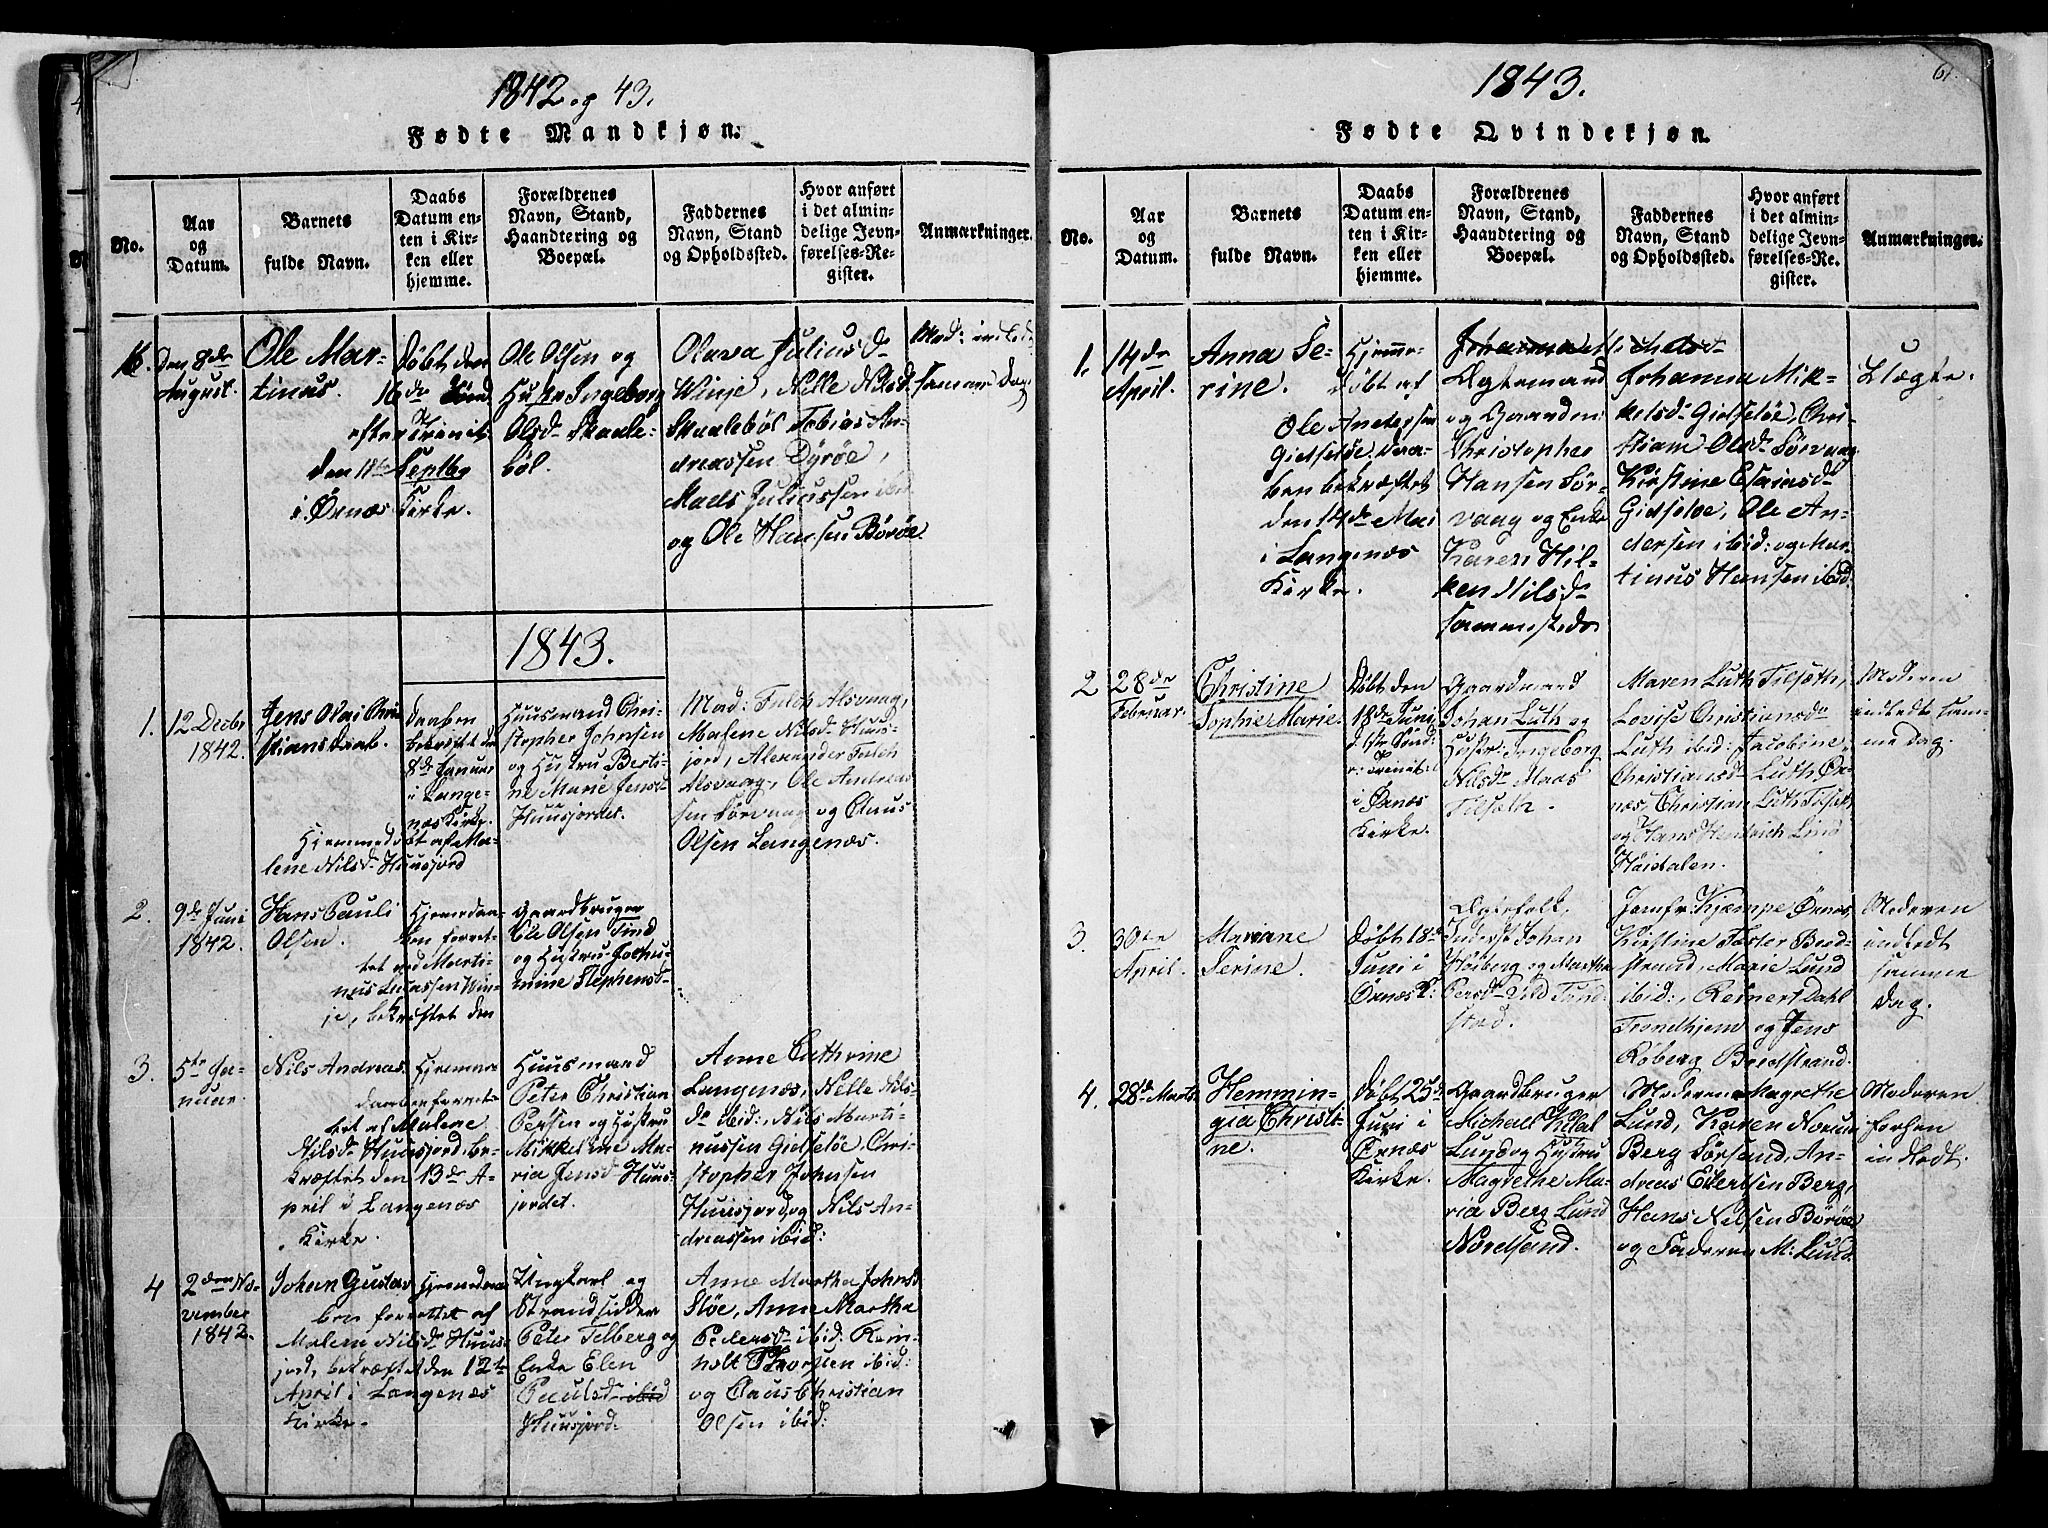 1842 og 43.
Fødte Mandkjøn.
No.
Aar
og
Datum.
Barnets
fulde Navn.
Daabs
Datum en-
ten i Kir-
ken eller
hjemme.
Forældrenes
Navn, Stand,
Haandtering og
Boepæl.
Faddernes
Navn, Stand
og Opholdssted.
Hvor anført
i det almin-
delige Jevn-
førelses-Re-
gister.
Anmærkninger.
16.
Den 8de
August.
Ole Mar-
tinus.
Døbt den
16de Sønd
efter Trinit:
den 18de Septbr
i Ørnæs Kirke.
Ole Olsen og
Hustru Ingeborg
Olsdr Skaale-
böl.
Olava Juliusdr
Winje, Nille Nilsdr
Skaaleböl Tobias An-
dreassen Dyröe,
Mads Juliussen ibid
og Ole Hansen Börøe.
Mod: indled
samme Dag.
1843.
1.
12 Decbr
1842.
Jens Olai Chri-
stian
Daaben
bekræftet den
8de Januar
i Lange-
næs Kirke.
Hjemmedøbt af Ma-
lene Nilsdr Huusjord
Huusmand Chri-
stopher Johnsen
og Hustru Berti-
ne Marie Jensdr
Huusjordet.
Mad: Falch Alsvaag,
Malene Nilsdr Huus-
jord, Alexander Falch
Alsvaag, Ole Andreas
sen Sørvaag og Claus
Olsen Langenæs.
2.
9de Juni
1842.
Hans Pauli
Olsen.
Hjemedaa-
ben forret-
tet ved Marti-
nus Lucassen Win-
je, bekræftet den
Gaardbruger
Ole Olsen Tind
og Hustru Jochu-
mine Stephensdr
3.
5te Ja-
nuar.
Nils Andreas.
Hjemme
daaben forret-
tet af Malene
Nilsdr Huusjord, be-
kræftet den 13de A-
pril i Langenæs
Kirke.
Huusmand
Peter Christian
Persen og Hustru
Mikkeline Ma-
ria Jensdr Huus-
jordet.
Anne Cathrine
Langenæs, Nille Nils-
dr ibid:, Nils Marti-
nussen Gidseløe, Chri-
stopher Johnsen
Huusjord og Nils An-
dreassen ibid:
4
2den No-
vember
1842.
Johan Gustav
Hjemedaa-
ben forrettet af
Malene Nilsdr Huus-
jord, bekræftet den 12te
April i Langenæs
Kirke.
Ungkarl og
Strandsidder
Peter Felberg og
Enke Elen
Paulsdr ibid
Huusjord.
Anne Martha Johnsdr
Sløe, Anne Martha
Pedersdr ibid: Rein-
holt Thorsen ibid:
og Claus Christian
Olsen ibid:
1843.
61.
Fødte Qvindekjøn.
No.
Aar
og
Datum.
Barnets
fulde Navn.
Daabs
Datum en-
ten i Kir-
ken eller
hjemme.
Forældrenes
Navn, Stand,
Haandtering og
Boepæl.
Faddernes
Navn, Stand
og Opholdssted.
Hvor anført
i det almin-
delige Jevn-
førelses-Re-
gister.
Anmærkninger.
1.
14de
April.
Anna Se-
rine.
Hjemme-
døbt af
Ole Andersen
Gidseløe, Daa-
ben bekræftet
den 14de Mai
i Langenæs
Kirke.
Johanna Michelsdr
Ægtemand
og Gaardm:
Christopher
Hansen Sør-
vaag og Enke
Karen Hil-
ken Nilsdr
sammesteds
Johanna Mik-
kelsdr Gidseløe, Chri-
stiane Olsdr Sørvaag
Kirstine Esaiasdr
Gidseløe, Ole An-
dersen ibid: og Mar-
tinus Hansen ibid:
Uægte.
2
28de
Februar.
Christine
Sophie Marie.
Døbt den
18de Juni
1ste Sønd:
e: Trinit:
i Ørnæs
Kirke.
Gaardmand
Johan Luth og
Hustru Ingeborg
Nilsdr Maas
Tilseth.
Maren Luth Tilseth,
Lovise Christiansdr
Luth ibid: Jacobine
Christiansdr Luth Ør-
næs, Christian Luth Tilseth
og Hans Hendrich Lind
Høidalen.
Moderen
indledt sam-
me Dag.
3.
30te
April.
Mariane
Serine.
Døbt 18de
Juni i
Ørnæs K:
Ægtefolk,
Inderst Johan
Høiberg og Martha
Persdr Tund-
stad.
Jomfr: Kjempe Ørnæs
Kirstine Falster Bred-
strand, Marie Lund
ibid:, Reinert Dahl
Trondhjem og Jens
Röberg Bredstrand.
Moderen
indledt
samme
Dag.
4.
28de Marts
Hemmin-
gia Christi-
ne.
Døbt 25de
Juni i
Ørnæs
Kirke.
Gaardbruger
Michael
Lund og Hustru
Magrethe Ma-
ria Berg Lund
Nordsand.
Moderen Magrethe
Lund, Karen Norum
Berg Sørsand, An-
dreas Eilertsen Berg,
Hans Nilsen Börøe
og Faderen M: Lund.
Moderen
forhen
indledt.